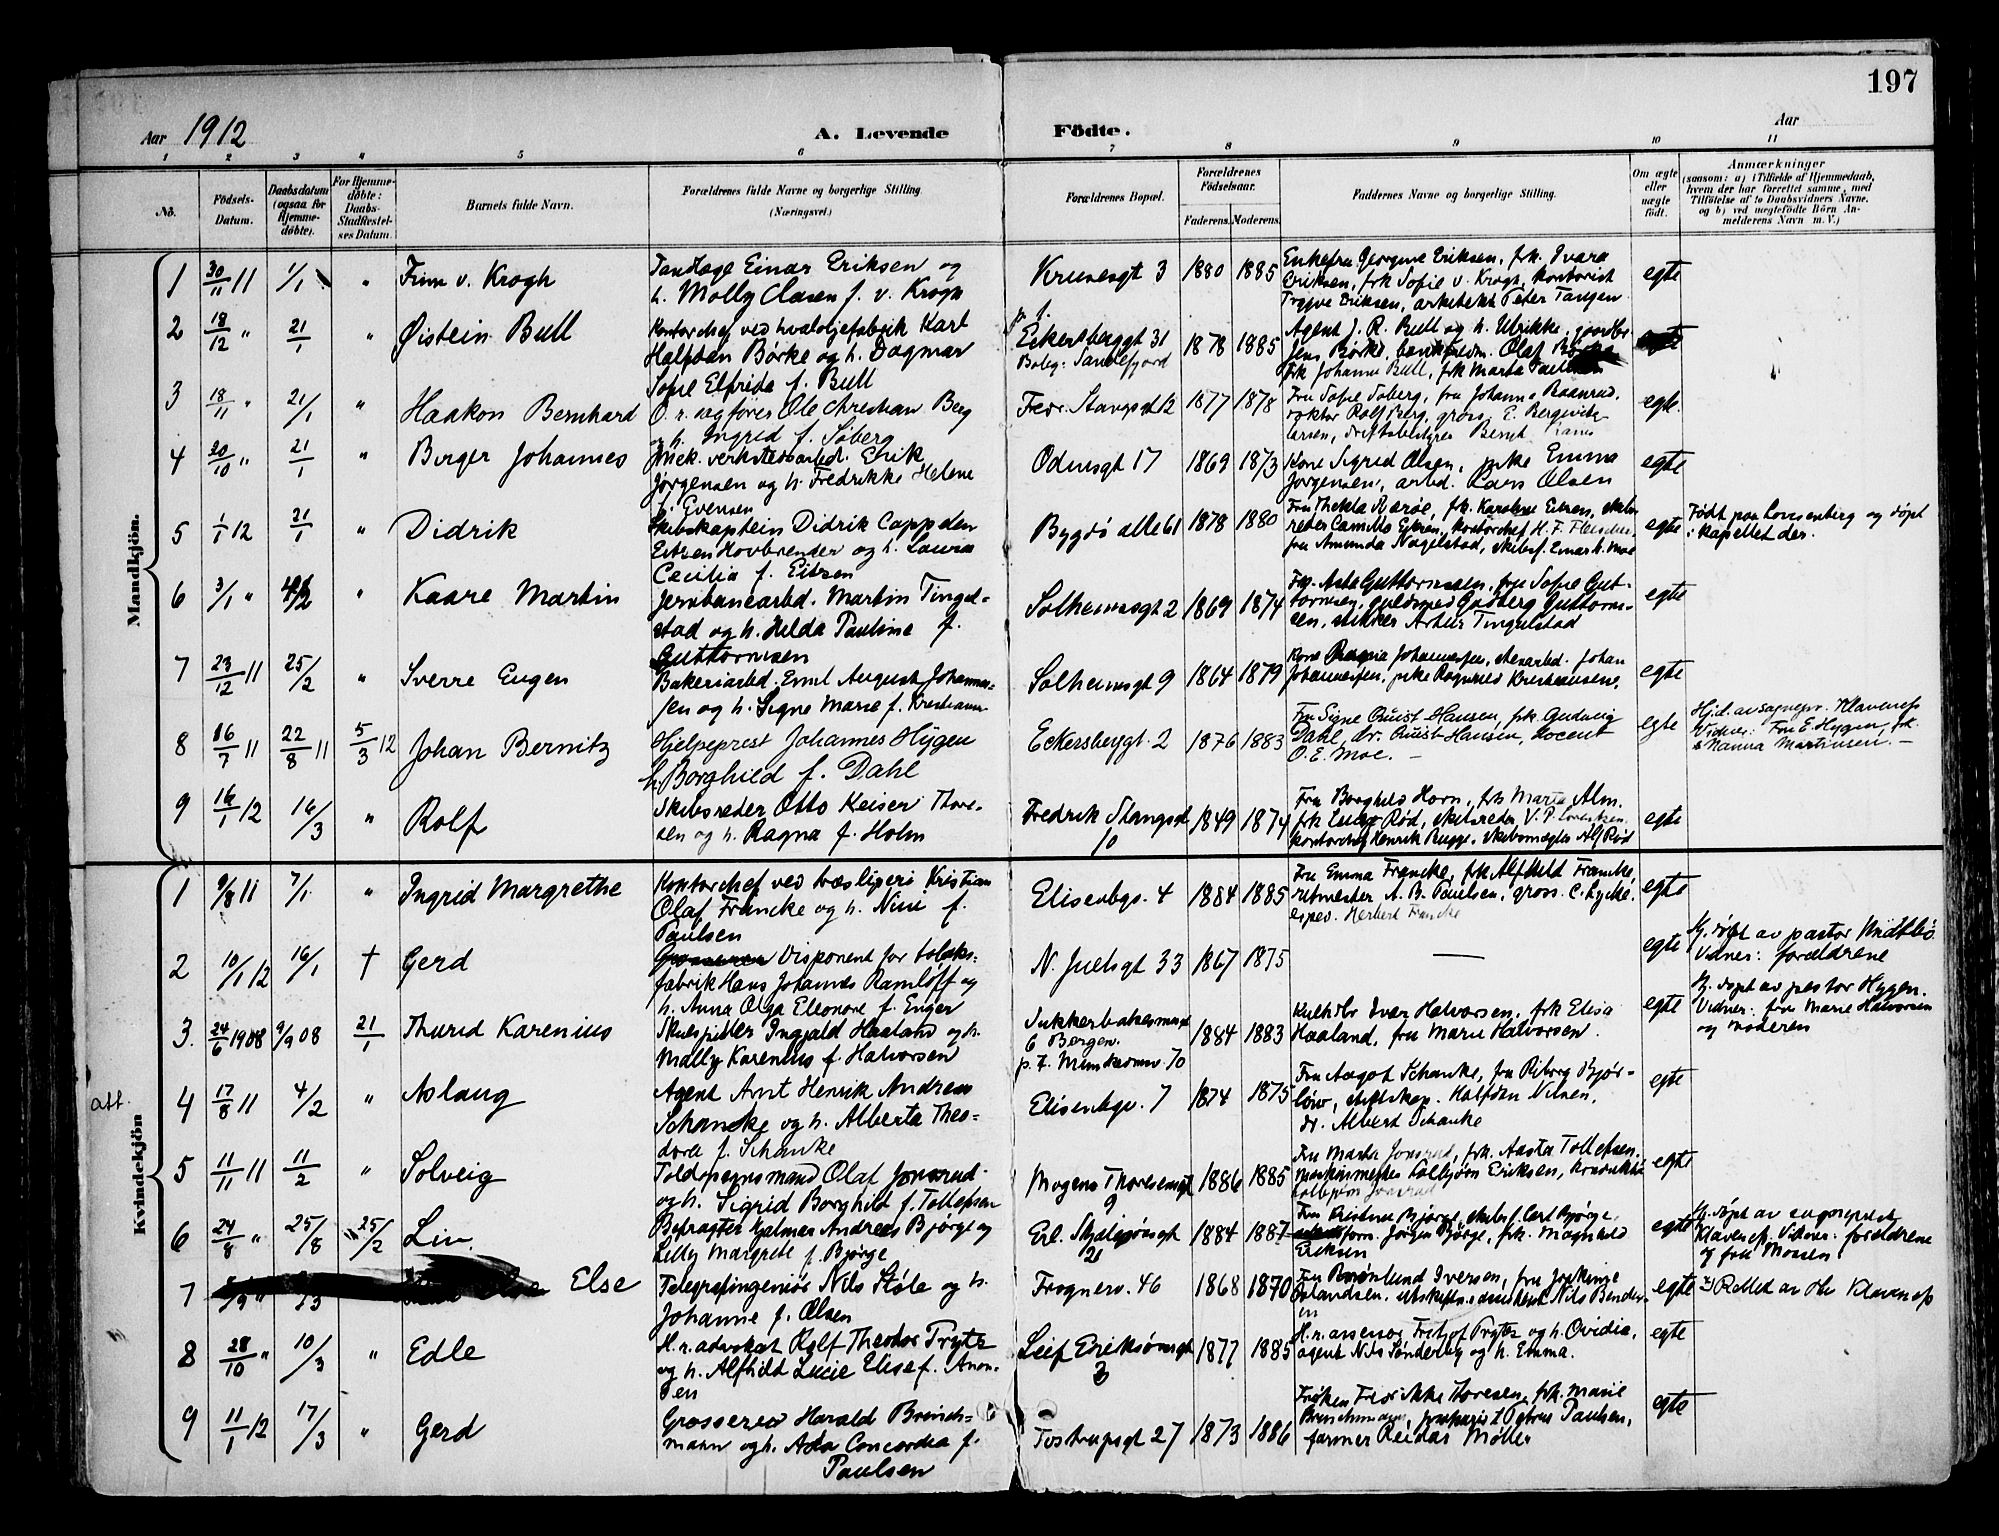 197
Aar 1912 A. Levende Födte. Aar
1 2 3 4 5 6 7 8 9 10 11
No. Födsels-Datum. Daabsdatum (ogsaa for Hjemme-döbte). For Hjemme-döbte: Daabs-Stadfæstel-ses Datum. Barnets fulde Navn. Forældrenes fulde Navne og borgerlige Stilling. (Næringsvei.) Forældrenes Bopæl. Forældrenes Födselsaar. Faderens. Moderens. Faddernes Navne og borgerlige Stilling. Om ægte eller uægte födt. Anmærkninger (saasom: a) i Tilfælde af Hjemmedaab, hvem der har forrettet samme, med Tilföielse af to Daabsvidners Navne. og b) ved uægtefödte Börn An-melderens Navn m. V.)
Mandkjön.
1 30/11 11 1/1 " Finn v. Krogh
Tandlæge Einar Eriksen og
h. Molly Clasen f. v. Krogh
Krusesgt 3 1880 1885
Enkefru Georgine Eriksen, frk. Ivara
Eriksen, frk Sofie v. Krogh, kontorist
Trygve Eriksen, arkitekt Peter Tangen
egte
2 18/12 " 21/1 " Øistein Bull
Kontorchef ved hvaloljefabrik Karl
Halfdan Børke og h. Dagmar
Sofie Elfrida f. Bull
Eckersbergsgt 31
Bolig: Sandefjord
1878 1885
Agent J. R. Bull og h. Ulrikke, gaardbr
Jens Børke, Olaf Børke
frk Johanne Bull, frk Marta
3 18/11 " 21/1 " Haakon Bernhard
O. r. sagfører Ole Christian Berg
og h. Ingrid f. Søberg
Fredr. Stangsgt 12 1877 1878
Fru Sofie Søberg, fru Johanne Raanrud,
Rolf Berg, gross. E. Bergwitz
Larsen, driftsbestyrer Bernt
egte.
4 30/10 " 21/1 " Birger Johannes
Mek. verkstedsarbd. Erik
Jørgensen og h. Fredrikke Helene
f. Evensen
Odinsgt 17 1869 1873
Kone Sigrid Olsen, pike Emma
Jørgensen, arbd. Lars Olsen
egte
5 1/1 12 21/1 " Didrik
Skibskaptein Didrik Cappelen
Eitzen Hovbrender og h. Laura
Cecilia f. Eitzen
Bygdø alle 61 1878 1880
Fru Thekla Marøe, frk. Karoline Eitzen, skibs
reder Camillo Eitzen, kontorchef H. F.
fru Amunda Nagelstad, skibsf. Einar h. Moe
egte
Født paa Lovisenberg og døpt
i kapellet der.
6 3/1 " 4/2 " Kaare Martin
Jernbanearbd. Martin Tingel-
stad og h. Helda Pauline f.
Guttormsen
Solheimsgt 2 1869 1874
Frk. Asta Guttormsen, fru Sofie Gut-
tormsen, guldsmed Gudberg Guttorm-
sen, snikker Artur Tingulstad
egte
7 23/12 11 25/2 " Sverre Eugen
Bakeriarbd. Emil August Johannes-
sen og h. Signe Marie f. Kristiansen
Solheimsgt 9 1864 1879
Kone Ragna Johannessen, stenarbd. Johan
Johannessen, pike Ragnhild Kristiansen.
egte
8 16/7 11 22/8 11 5/3 12 Johan Bernitz
Hjelpeprest Johannes Hygen
h. Borghild f. Dahl
Eckersbergt. 2 1876 1883
Fru Signe Quist Hansen, frk. Gudveig
Dahl, dr. Quist Hansen, docent
O. E. Moe. –
egte
Hj.d. av sognepr. Klaveness
Vidner: Fru E. Hygen, frk.
Nanna Martinsen. –
9 16/1 12 16/3 " Rolf
Skibsreder Otto Keiser Thore-
sen og h. Ragna f. Holm
Fredrik Stangsgt
10
1849 1874
Fru Borghild Horn, frk Marta Alm.
frk Rød, skibsreder V. P.
kontorchef Henrik Bugge, skibsmegler Alf Röd
egte
Kvindekjön
1 9/8 11 7/1 " Ingrid Margrethe
Kontorchef ved træsliperi Kristian
Olaf Francke og h. Nini f.
Paulsen
Elisenbgv. 4 1884 1885
Fru Emma Francke, frk Alfhild Francke,
ritmester A. B. Paulsen, gross. C. Lycke.
Herbert Francke
egte
2 10/1 12 16/1 † Gerd
Disponent for tobaks-
fabrik Hans Johannes Ramloff og
h. Anna Olga Eleonore f. Enger
N. Juelsgt 33 1867 1875
—
egte
Hj. døpt av pastor Midtbö
Vidner: forældrene
3. 24/6 1908 9/9 08 21/1 Thurid Karenius
Skuespiller Ingjald Haaland og h.
Mally Karenius f. Halvorsen
Sukkerhusmuset
6 Bergen.
p. t. Munkedamsv. 70
1884 1883
Ivar Halvorsen, frk Elisa
Haaland, fru Marie Halvorsen.
egte
Hj. døpt av pastor Hygen.
Vidner: fru Marie Halvorsen
og moderen
att.
4 17/8 11 4/2 " Aslaug
Agent Arnt Henrik Andreas
Schancke og h. Alberta Theo-
dora f. Schancke
Elisenbgv. 7 1874 1875
Fru Aagot Schancke, fru Riborg Bjør-
low, skibskap. Halfdan Nilsen,
dr. Albert Schancke
egte
5 11/11 11 11/2 " Solveig
Toldopsynsmand Olaf Jonsrud
og h. Sigrid Borghild f. Tollefsen
Mogens Thorsensgt
9
1886 1885
Fru Marta Jonsrud, frk. Aasta Tollefsen.
Kolbjørn Eriksen, konduktør
Kolbjørn Jonsrud
egte
6 24/8 " 25/8 25/2 Liv.
Befragter Hjalmar Andreas Bjørge og
Lilly Margrete f. Bjørge
Erl. Skjalgsönsgt
21
1884 1887
Fru Kristine Bjørge, skibsf. Carl Bjørge,
Jörgen Bjørge, frk. Magnhild
Eriksen
egte
Hj. døpt av sogneprest
Klaveness. Vidner: forældrene
og fru Mossen
7 Else
Telegrafingeniør Nils Støle og h.
Johanne f. Olsen
Frognerv. 46 1868 1870
Fru Brønlund Iversen, fru Jokinge
Nils Bender-
egte
Rettet av Hr Klaveness
8 28/10 " 10/3 " Edle
H. r. advokat Rolf Theodor Prytz
og h. Alfhild Lucie Elise f. Amun-
sen
Leif Eriksönsgt
1877 1885
H. r. assessor Fritjof Prytz og h. Ovidia,
agent Nils Sønderby og h. Emma.
egte
9 11/1 12 17/3 " Gerd
Grosserer Harald Brinch-
mann og h. Ada Concordia f.
Paulsen
Tostrupsgt 27 1873 1886
Frøken Fredrikke Thoresen, frk. Marie
Brinchmann, Paulsen,
farmer Reidar Møller
egte